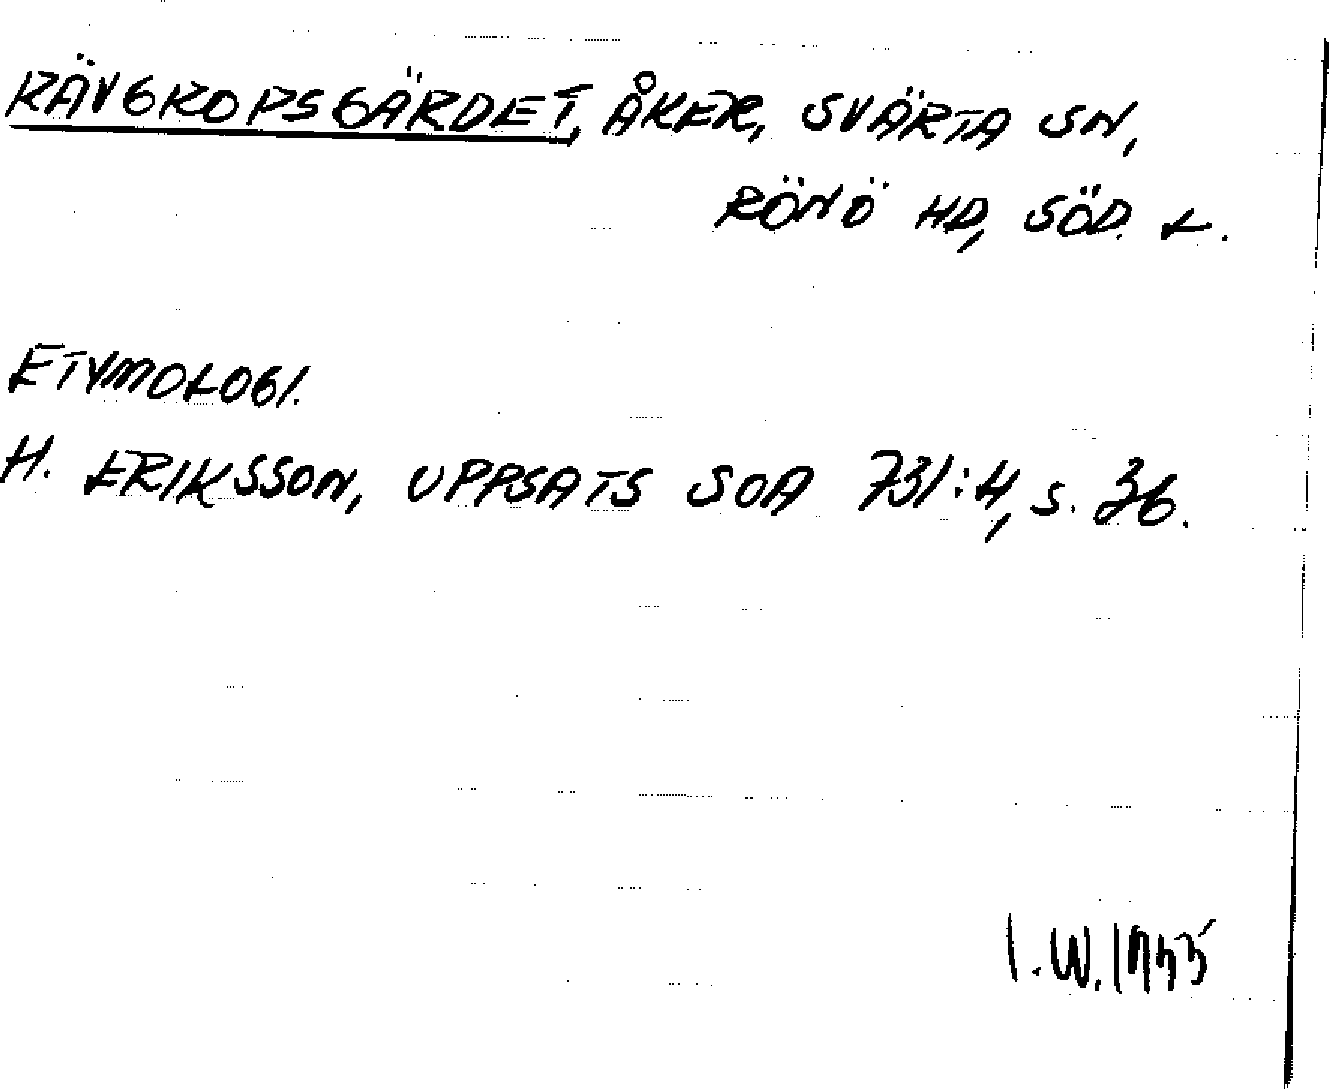 RÄVGROPSGÄRDET, ÅKER, SVÄRTA SN,
RÖNÖ HD, SÖD. L.
ETYMOLOGI.
H. ERIKSSON, UPPSATS SOA 731:4, S. 36.
I.W. 1955